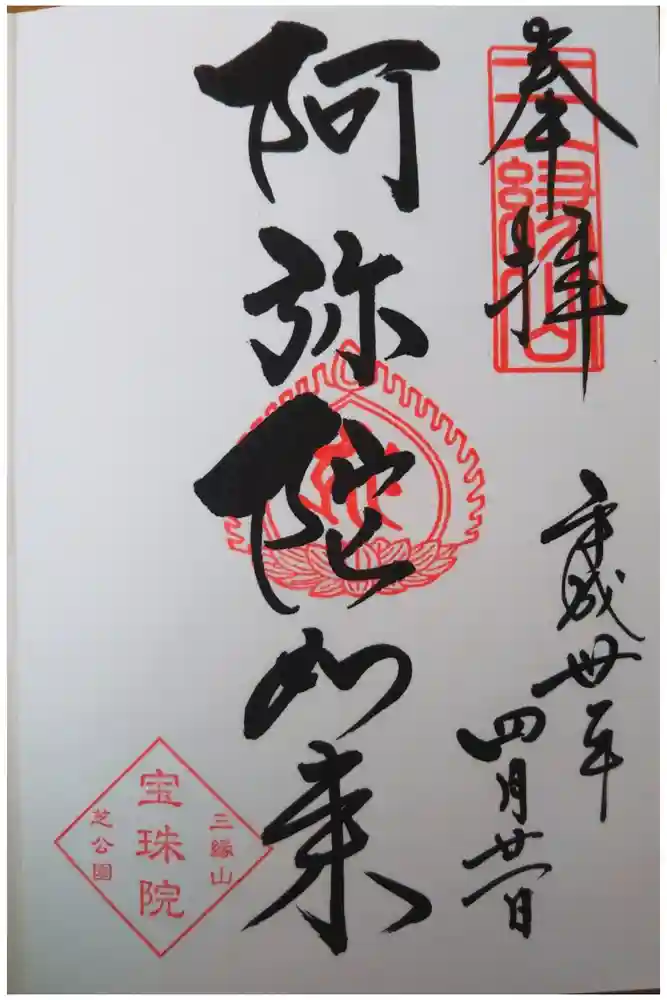 奉拝
三縁山
平成卅年
四月廿一日
阿弥陀如来
三縁山
宝珠院
芝公園